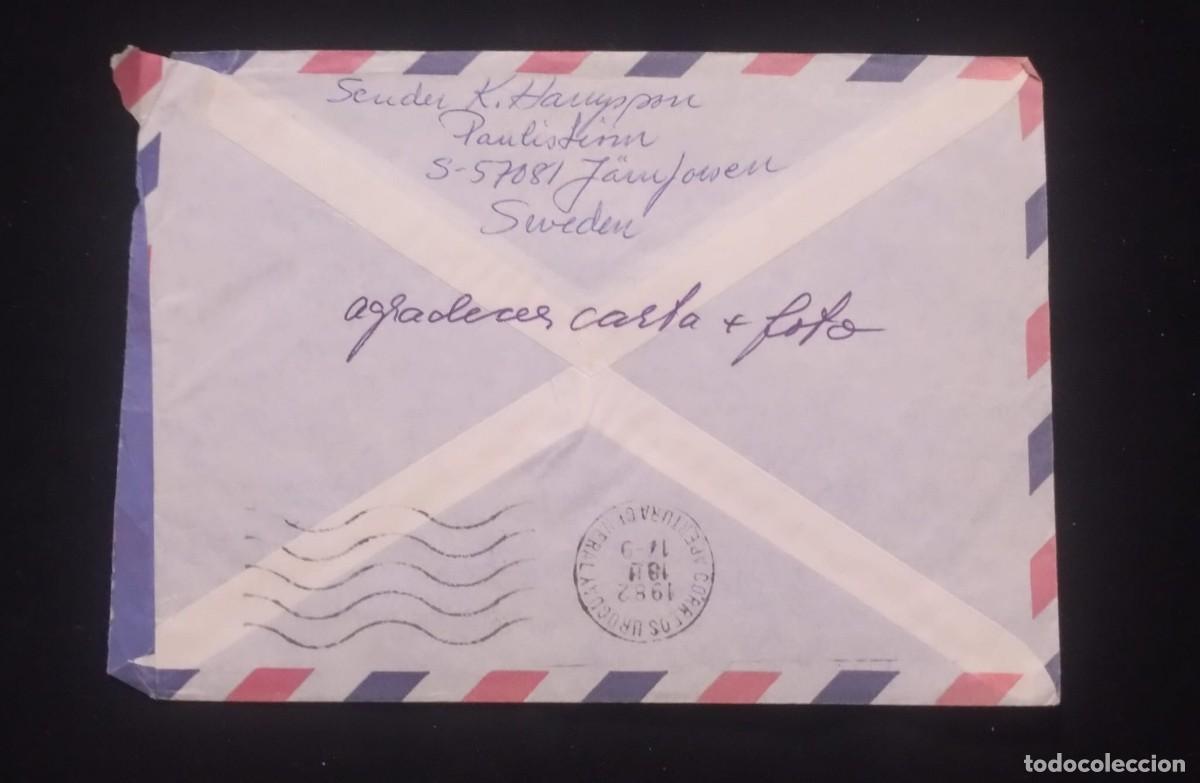 Sender K.
Pauliström
S-57081 Järnforsen
Sweden
agradecer carta + foto
CORREOS URUGUAY
APERTURA GENERAL
1982
14-9
todocoleccion